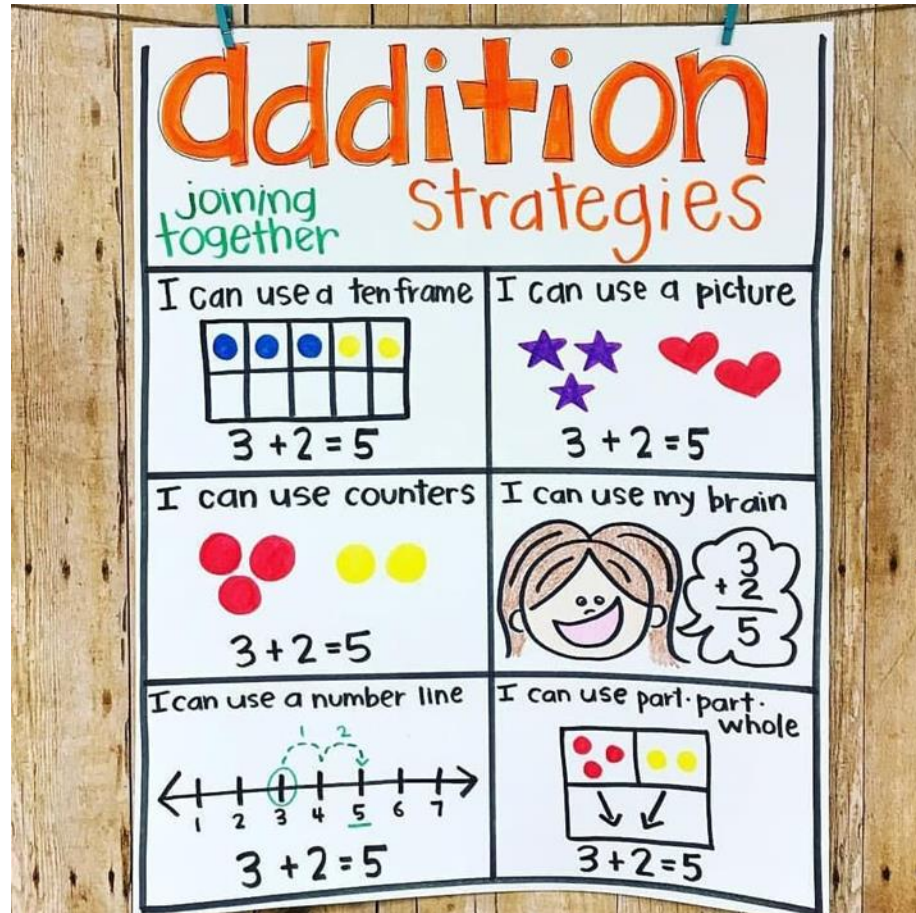 addition
joining
together
strategies
I can use a ten frame
3 + 2 = 5
I can use a picture
3 + 2 = 5
I can use counters
3 + 2 = 5
I can use my brain
3
+ 2
5
I can use a number line
1 2
1 2 3 4 5 6 7
3 + 2 = 5
I can use part·part·
whole
3 + 2 = 5